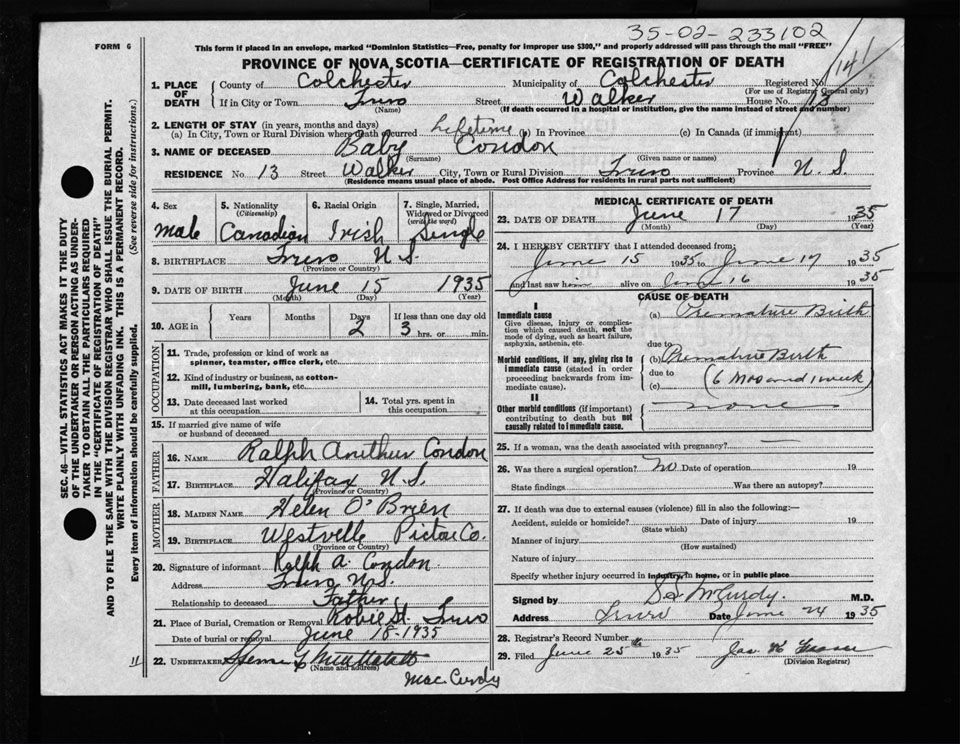 35-02-233102
FORM 6
This form if placed in an envelope, marked "Dominion Statistics—Free, penalty for improper use $300," and properly addressed will pass through the mail "FREE"
141
PROVINCE OF NOVA SCOTIA—CERTIFICATE OF REGISTRATION OF DEATH
1. PLACE OF DEATH
County of Colchester Municipality of Colchester Registered No.
(For use of Registrar General only)
If in City or Town Truro Street Walker House No. 13
(Name) (If death occurred in a hospital or institution, give the name instead of street and number)
2. LENGTH OF STAY (in years, months and days)
(a) In City, Town or Rural Division where death occurred Lifetime (b) In Province (c) In Canada (if immigrant)
3. NAME OF DECEASED Baby Condon
(Surname) (Given name or names)
RESIDENCE No. 13 Street Walker City, Town or Rural Division Truro Province N. S.
(Residence means usual place of abode. Post Office Address for residents in rural parts not sufficient)
4. Sex
male
5. Nationality
(Citizenship)
Canadian
6. Racial Origin
Irish
7. Single, Married, Widowed or Divorced
(write the word)
Single
8. BIRTHPLACE Truro N.S.
(Province or Country)
9. DATE OF BIRTH June 15 1935
(Month) (Day) (Year)
10. AGE in
Years Months Days If less than one day old
2 3 hrs. or min.
OCCUPATION
11. Trade, profession or kind of work as spinner, teamster, office clerk, etc.
12. Kind of industry or business, as cotton-mill, lumbering, bank, etc.
13. Date deceased last worked at this occupation
14. Total yrs. spent in this occupation
15. If married give name of wife or husband of deceased
FATHER
16. NAME Ralph Arthur Condon
17. BIRTHPLACE Halifax N.S.
(Province or Country)
MOTHER
18. MAIDEN NAME Helen O'Brien
19. BIRTHPLACE Westville Pictou Co.
(Province or Country)
20. Signature of informant Ralph A. Condon
Address Truro N.S.
Relationship to deceased Father
21. Place of Burial, Cremation or Removal Robie St. Truro
Date of burial or removal June 18-1935
22. UNDERTAKER
(Name and address)
MacCurdy
11
MEDICAL CERTIFICATE OF DEATH
23. DATE OF DEATH June 17 1935
(Month) (Day) (Year)
24. I HEREBY CERTIFY that I attended deceased from:
June 15 1935 to June 17 1935
and last saw him alive on June 16 1935
CAUSE OF DEATH
I
Immediate cause
Give disease, injury or complication which caused death, not the mode of dying, such as heart failure, asphyxia, asthenia, etc.
(a) Premature Birth
due to
Morbid conditions, if any, giving rise to immediate cause (stated in order proceeding backwards from immediate cause).
(b) Premature Birth
due to (6 mos and 1 week)
(c)
II
Other morbid conditions (if important) contributing to death but not causally related to immediate cause.
none
25. If a woman, was the death associated with pregnancy?
26. Was there a surgical operation? No Date of operation 19
State findings Was there an autopsy?
27. If death was due to external causes (violence) fill in also the following:—
Accident, suicide or homicide? Date of injury 19
(State which)
Manner of injury
(How sustained)
Nature of injury
Specify whether injury occurred in industry, in home, or in public place
Signed by McCurdy. M.D.
Address Truro Date June 24 1935
28. Registrar's Record Number
29. Filed June 25th 1935
(Division Registrar)
SEC. 46—VITAL STATISTICS ACT MAKES IT THE DUTY
OF THE UNDERTAKER OR PERSON ACTING AS UNDER-
TAKER TO OBTAIN ALL THE PARTICULARS REQUIRED
IN THE "CERTIFICATE OF REGISTRATION OF DEATH"
AND TO FILE THE SAME WITH THE DIVISION REGISTRAR WHO SHALL ISSUE THE BURIAL PERMIT.
WRITE PLAINLY WITH UNFADING INK. THIS IS A PERMANENT RECORD.
Every item of information should be carefully supplied. (See reverse side for instructions.)